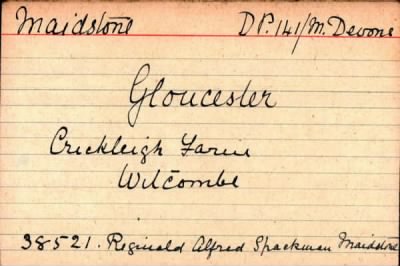 Maidstone D.P. 141/M. Devons
Gloucester
Crickleigh Farm
Witcombe
38521. Reginald Alfred Spackman Maidstone